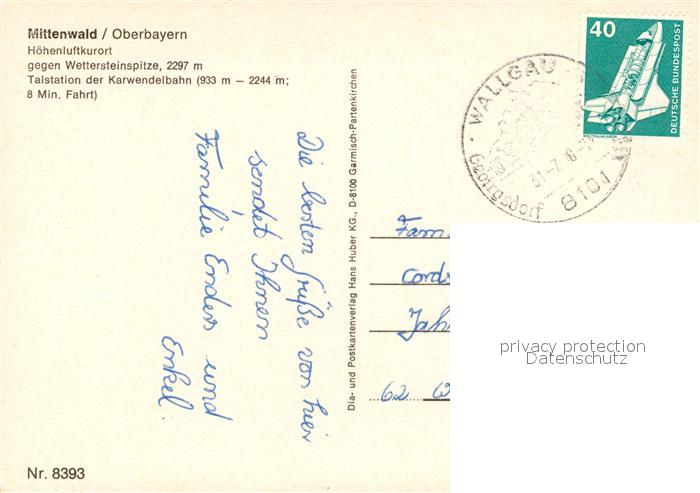 Mittenwald / Oberbayern
Höhenluftkurort
gegen Wettersteinspitze, 2297 m
Talstation der Karwendelbahn (933 m – 2244 m;
8 Min. Fahrt)
Die besten Grüße von hier
sendet Ihnen
Familie Enders und
Enkel.
Nr. 8393
Dia- und Postkartenverlag Hans Huber KG., D-8100 Garmisch-Partenkirchen
40
DEUTSCHE BUNDESPOST
WALLGAU
Gebirgsdorf
8101
Fam.
Cords
Jahn
62 W
privacy protection
Datenschutz